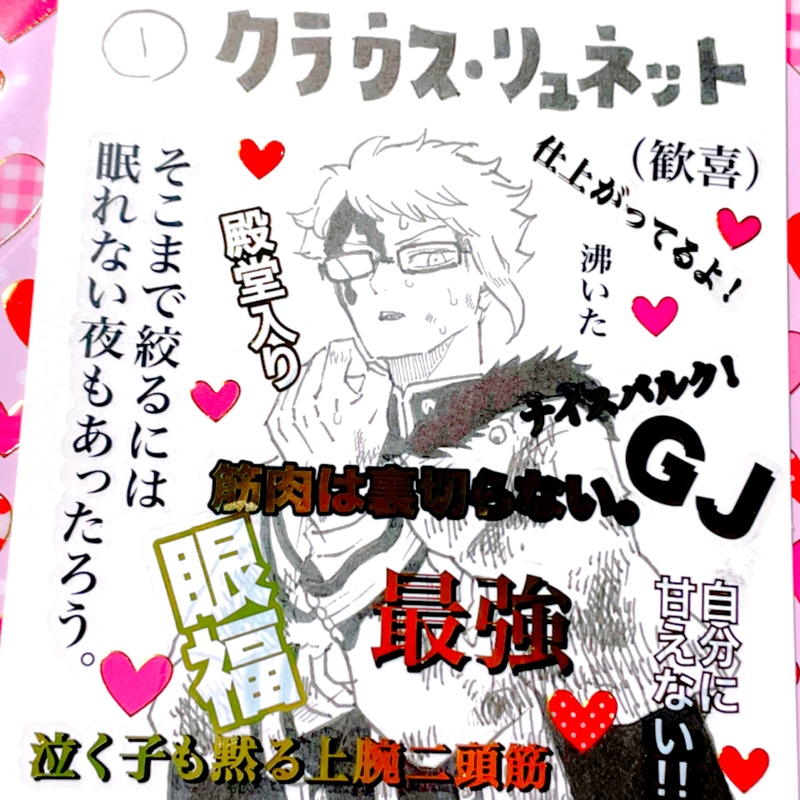 1
クラウス・リュネット
(歓喜)
仕上がってるよ!
沸いた
そこまで絞るには
眠れない夜もあったろう。
殿堂入り
ナイスバルク!
GJ
筋肉は裏切らない。
眼福
最強
自分に
甘えない!!
泣く子も黙る上腕二頭筋